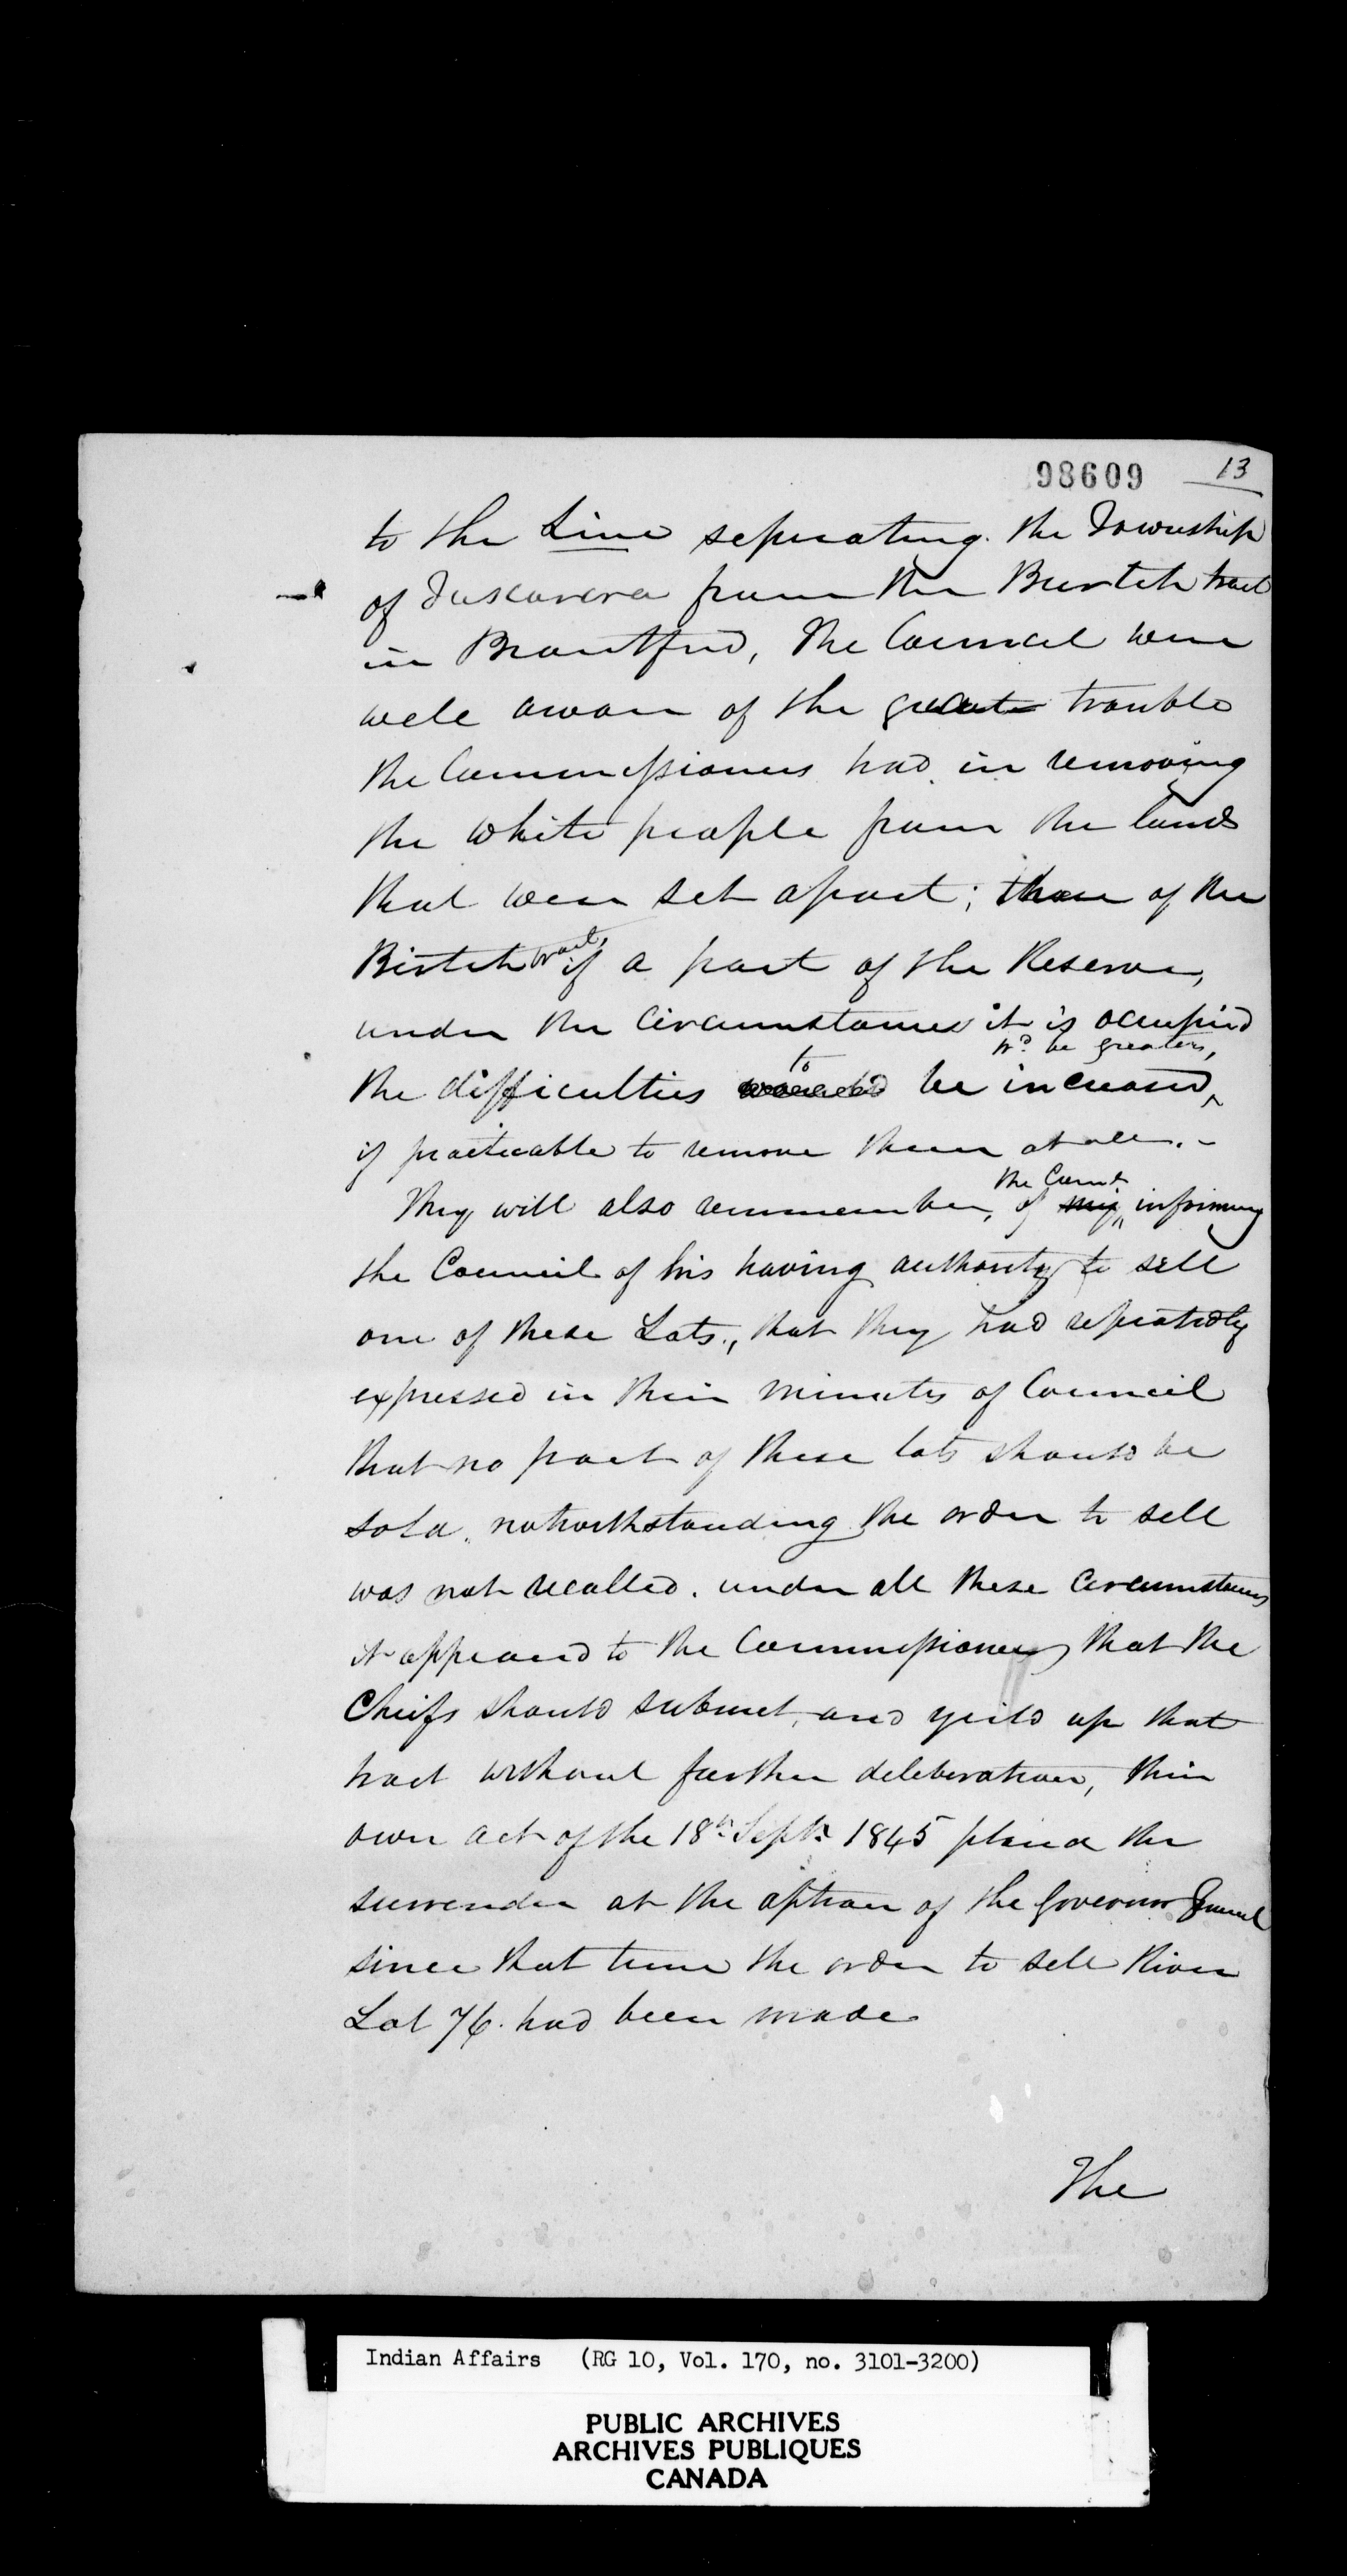 98609 13
to the Line seperating the Township
of Tuscarora from the Burtch tract
in Brantford, The Council were
well aware of the great trouble
the Commissioners had in removing
the white people from the lands
that were set apart; those of the
Birtch tract, if a part of the Reserve,
under the Circumstances it is occupied
the difficulties to be increased, wd be greater,
if practicable to remove them at all. -
They will also remmember, of the Comr informing
the Council of his having authority to sell
one of these Lots, that they had repeatedly
expressed in their minutes of Council
that no part of these lots should be
sold, notwithstanding the order to sell
was not recalled. under all these Circumstances
it appeared to the Commissioners that the
Cheifs should submit, and yeild up that
tract without further deleberation, their
own act of the 18th Septr 1845 placed the
surrender at the option of the Governor General
since that time the order to sell River
Lot 76. had been made
The
Indian Affairs (RG 10, Vol. 170, no. 3101-3200)
PUBLIC ARCHIVES
ARCHIVES PUBLIQUES
CANADA